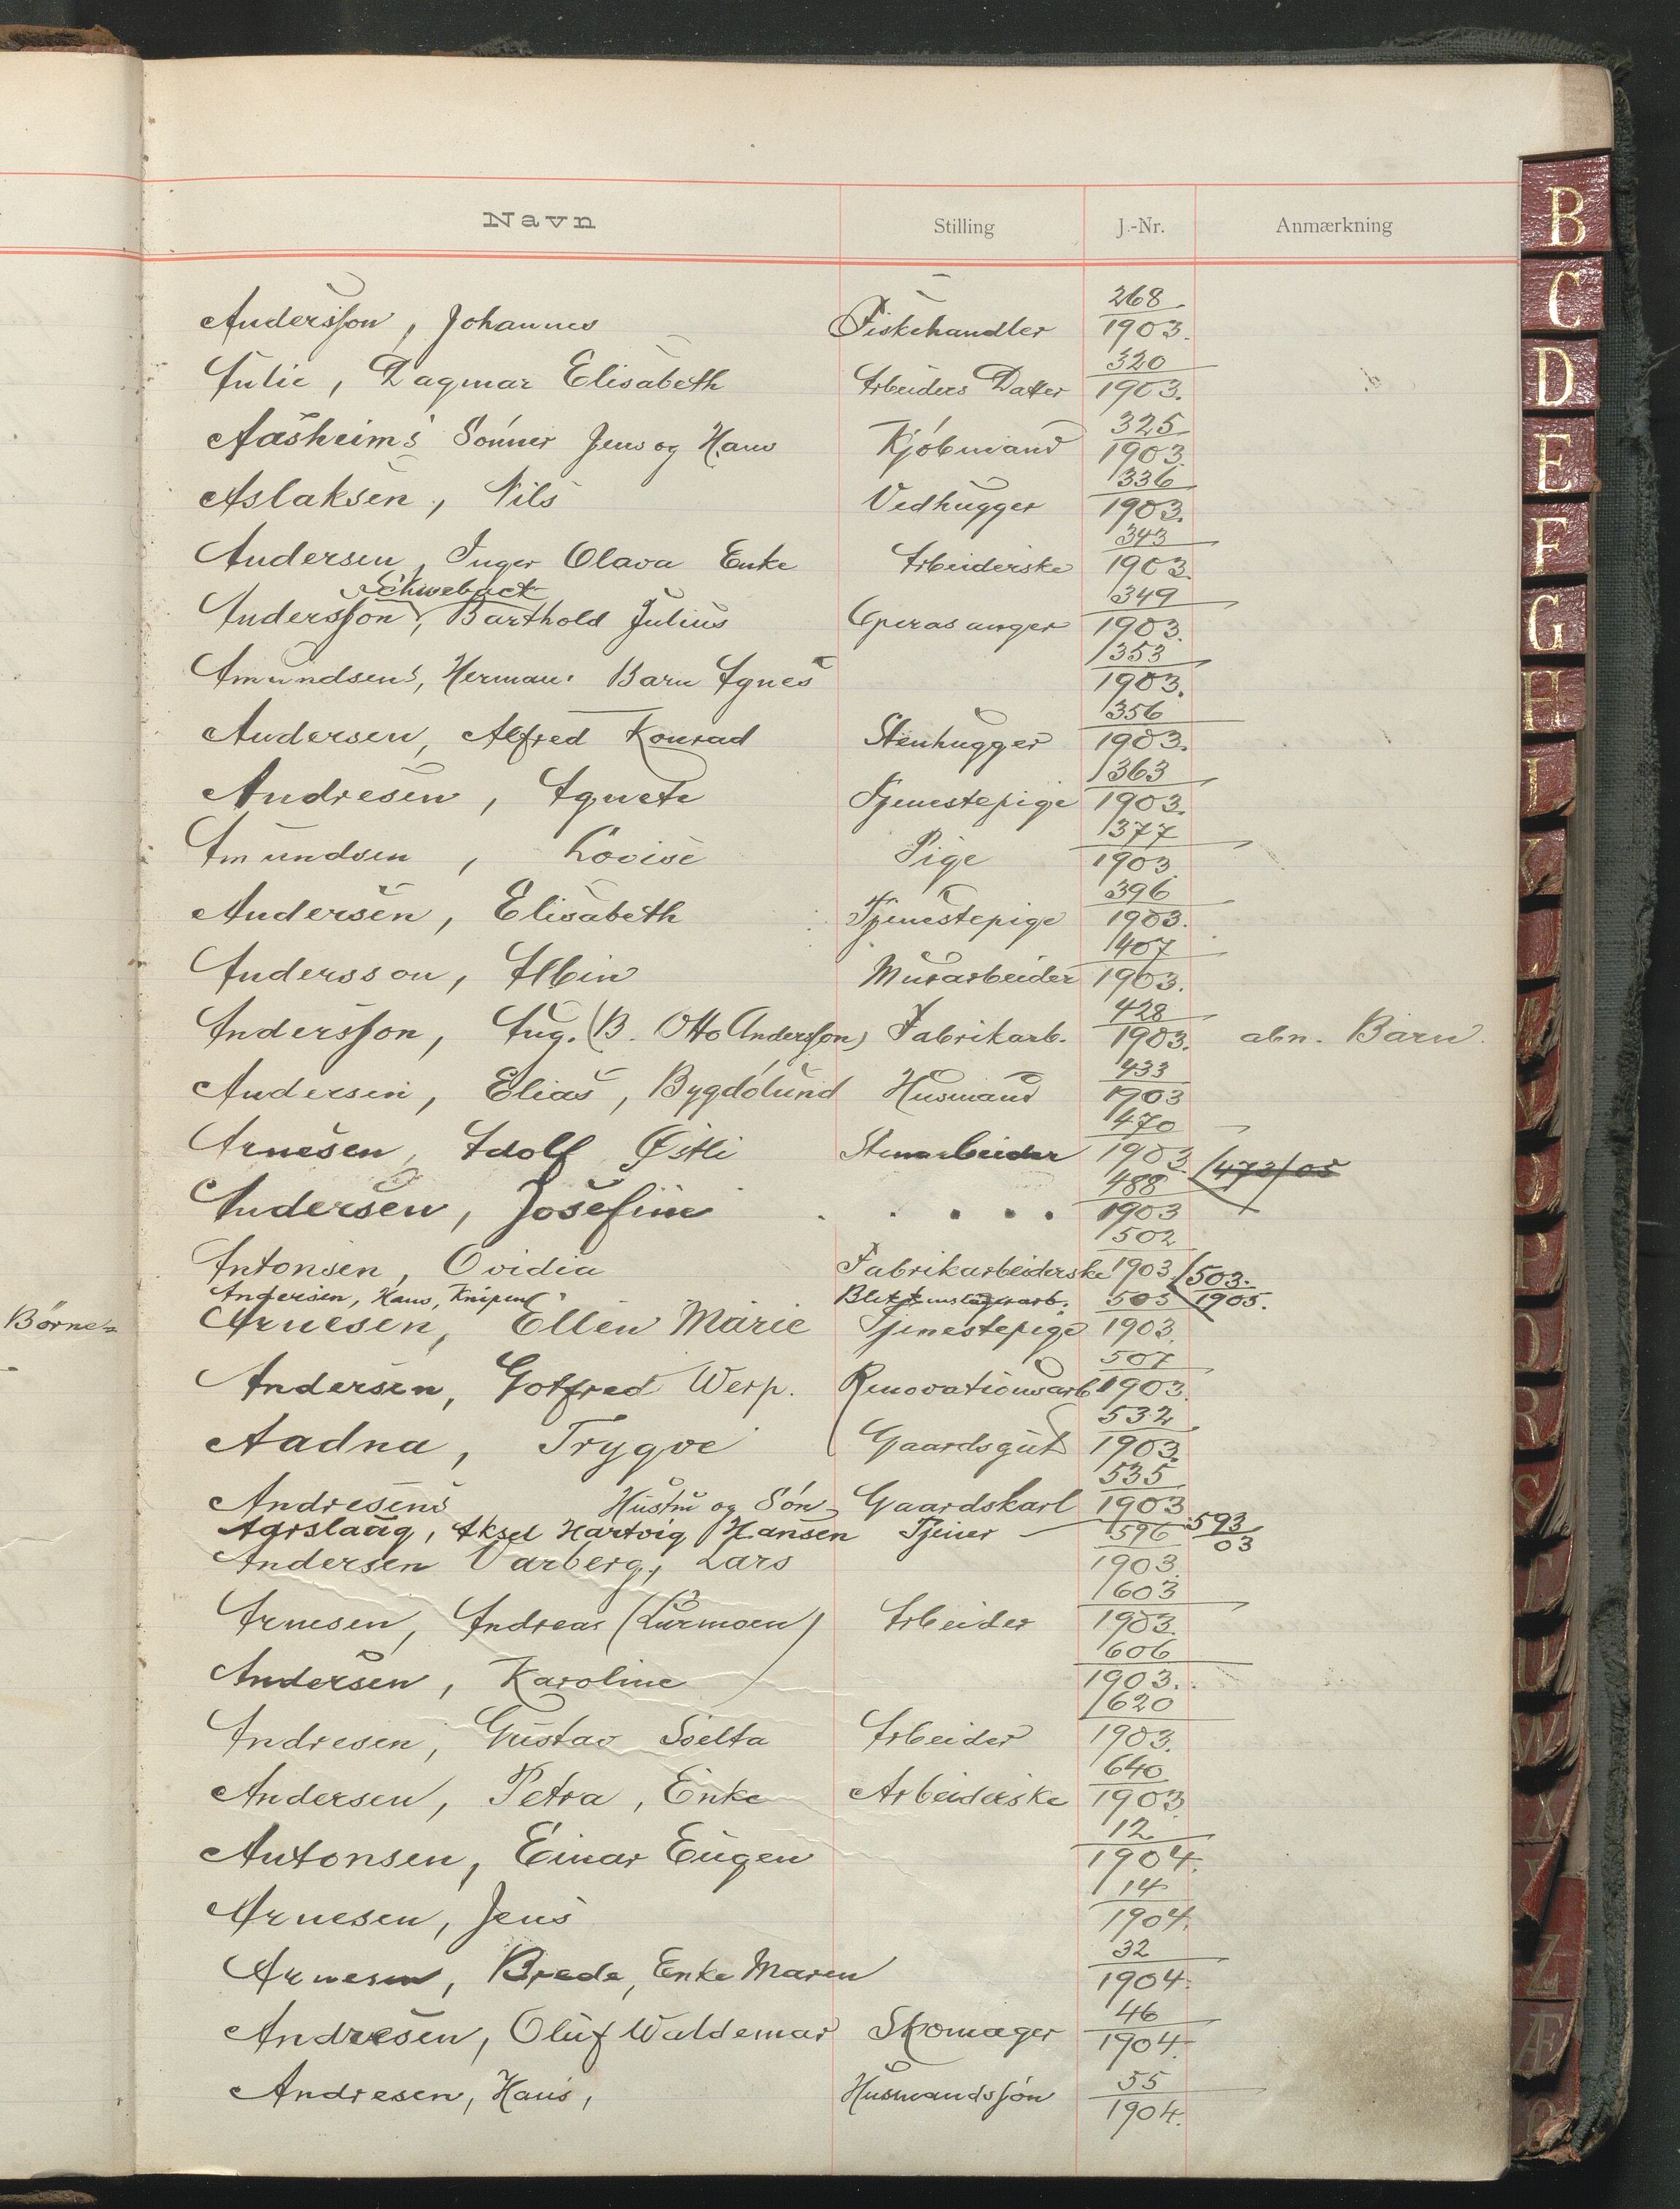 Navn Stilling J.-Nr. Anmærkning
Andersson, Johannes Fiskehandler 268/1903.
Julie, Dagmar Elisabeth Arbeiders Datter 320/1903.
Aasheims Sønner Jens og Hans Kjøbmand 325/1903
Aslaksen, Nils Vedhugger 336/1903.
Andersen, Inger Olava Enke Arbeiderske 343/1903.
Andersson, Barthold Julius Operasanger 349/1903.
Amundsens, Herman: Barn Agnes 353/1903.
Andersen, Alfred Konrad Stenhugger 356/1903.
Andresen, Agnete Tjenestepige 363/1903.
Amundsen, Lovise Pige 377/1903.
Andersen, Elisabeth Tjenestepige 396/1903.
Andersson, Albin Murarbeider 407/1903.
Andersson, Aug. (B. Otto Andersson) Fabrikarb. 428/1903. abn. Barn.
Andersen, Elias, Bygdølund Husmand 433/1903
Arnesen, Adolf Østli Stenarbeider 470/1903 473/05
Andersen, Josefine . . . . . 488/1903
Antonsen, Ovidia Fabrikarbeiderske 502/1903 503./1905.
Andersen, Hans, Knipen
Børne= Arnesen, Ellen Marie Tjenestepige 505/1903.
Andersen, Gotfred Werp. Renovationsarb 507/1903.
Aadna, Trygve Gaardsgut 532/1903.
Andresens Hustru og Søn Gaardskarl 535/1903
Aarslaug, Aksel Hartvig Hansen Tjener 593/03
Andersen Varberg, Lars 596/1903.
Arnesen, Andreas (Lurmoen) Arbeider 603/1903.
Andersen, Karoline 606/1903.
Andresen, Gustav Arbeider 620/1903.
Andersen, Petra, Enke Arbeiderske 640/1903.
Antonsen, Einar Eugen 12/1904.
Arnesen, Jens 14/1904.
Arnesen, Brede, Enke Maren 32/1904.
Andresen, Oluf Waldemar Skomager 46/1904.
Andresen, Hans, Husmandssøn 55/1904.
B
C
D
E
F
G
H
I
K
L
M
N
O
P
Q
R
S
T
U
W
X
Z
Æ